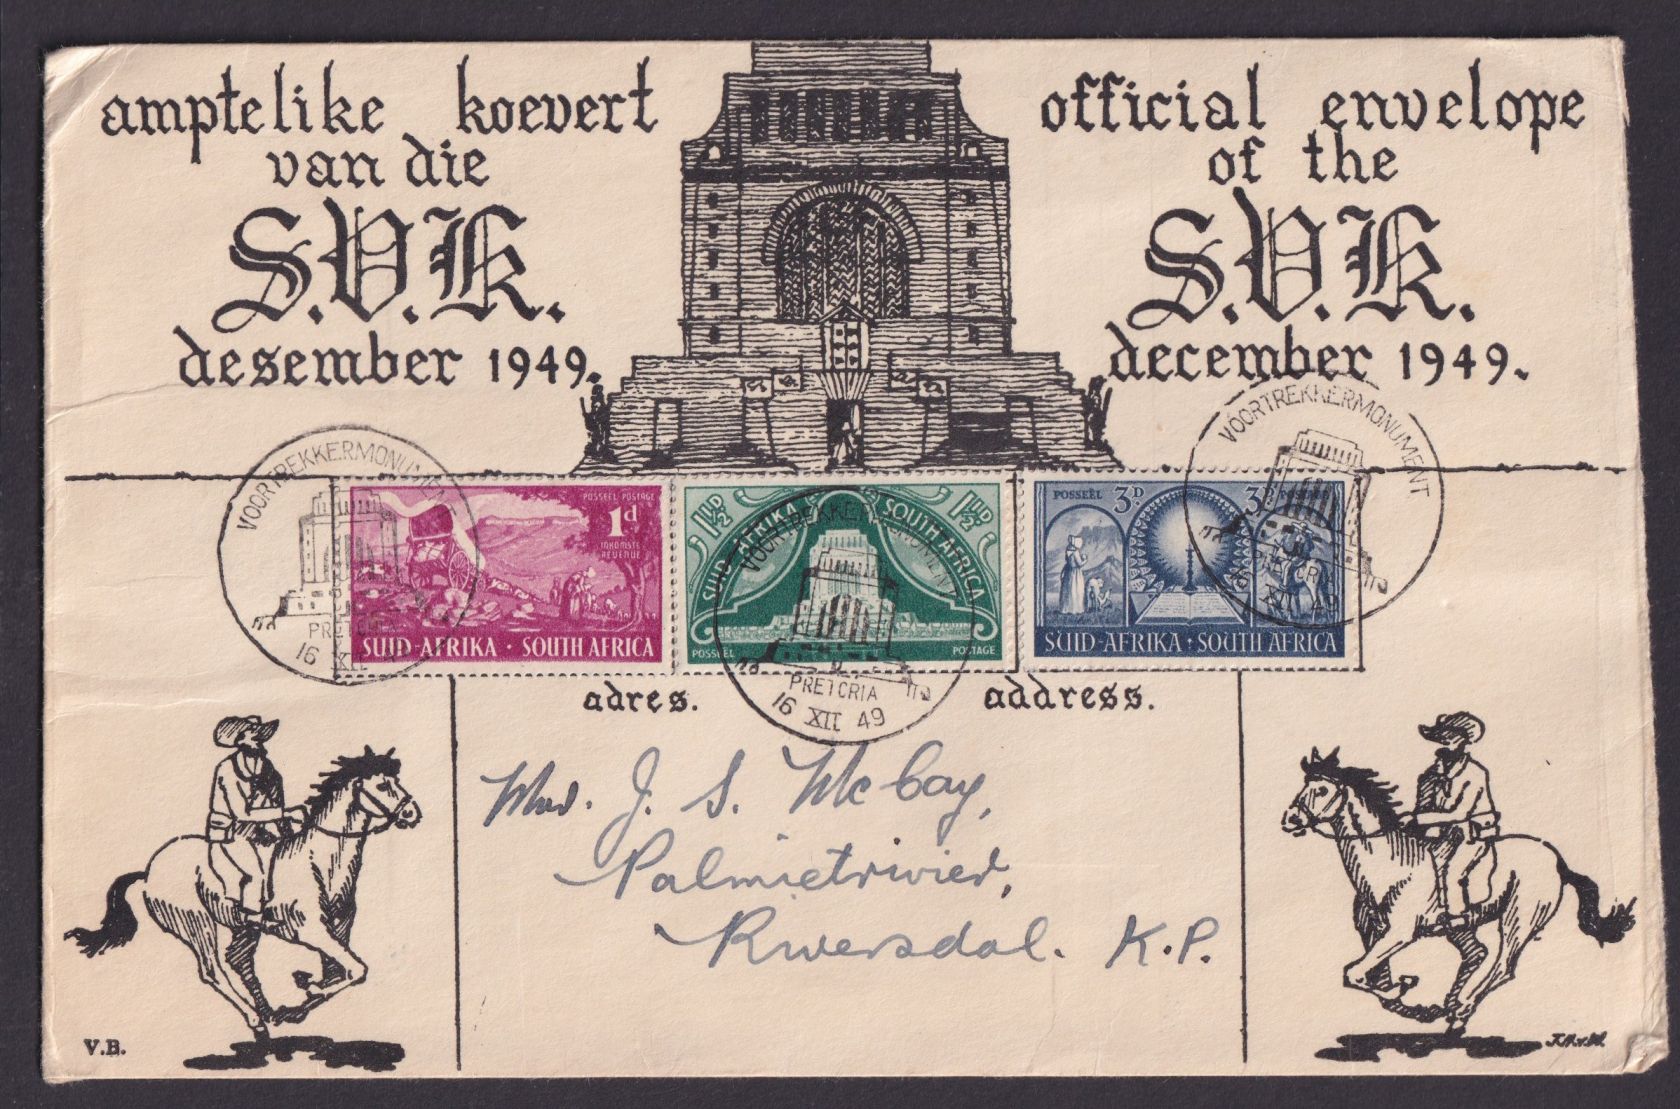 amptelike koevert
van die
S.V.K.
desember 1949.
official envelope
of the
S.V.K.
december 1949.
VOORTREKKERMONUMENT
PRETORIA
16 XII
POSSEEL POSTAGE
1d
INKOMSTE
REVENUE
SUID-AFRIKA · SOUTH AFRICA
1½D
1½D
SUID-AFRIKA
SOUTH AFRICA
POSSEEL
POSTAGE
VOORTREKKERMONUMENT
PRETORIA
16 XII 49
POSSEEL 3D
3D POSTAGE
SUID-AFRIKA · SOUTH AFRICA
VOORTREKKERMONUMENT
PRETORIA
XII 49
adres.
address.
J. S. McCay,
Palmietrivier,
Riversdal. K.P.
V.B.